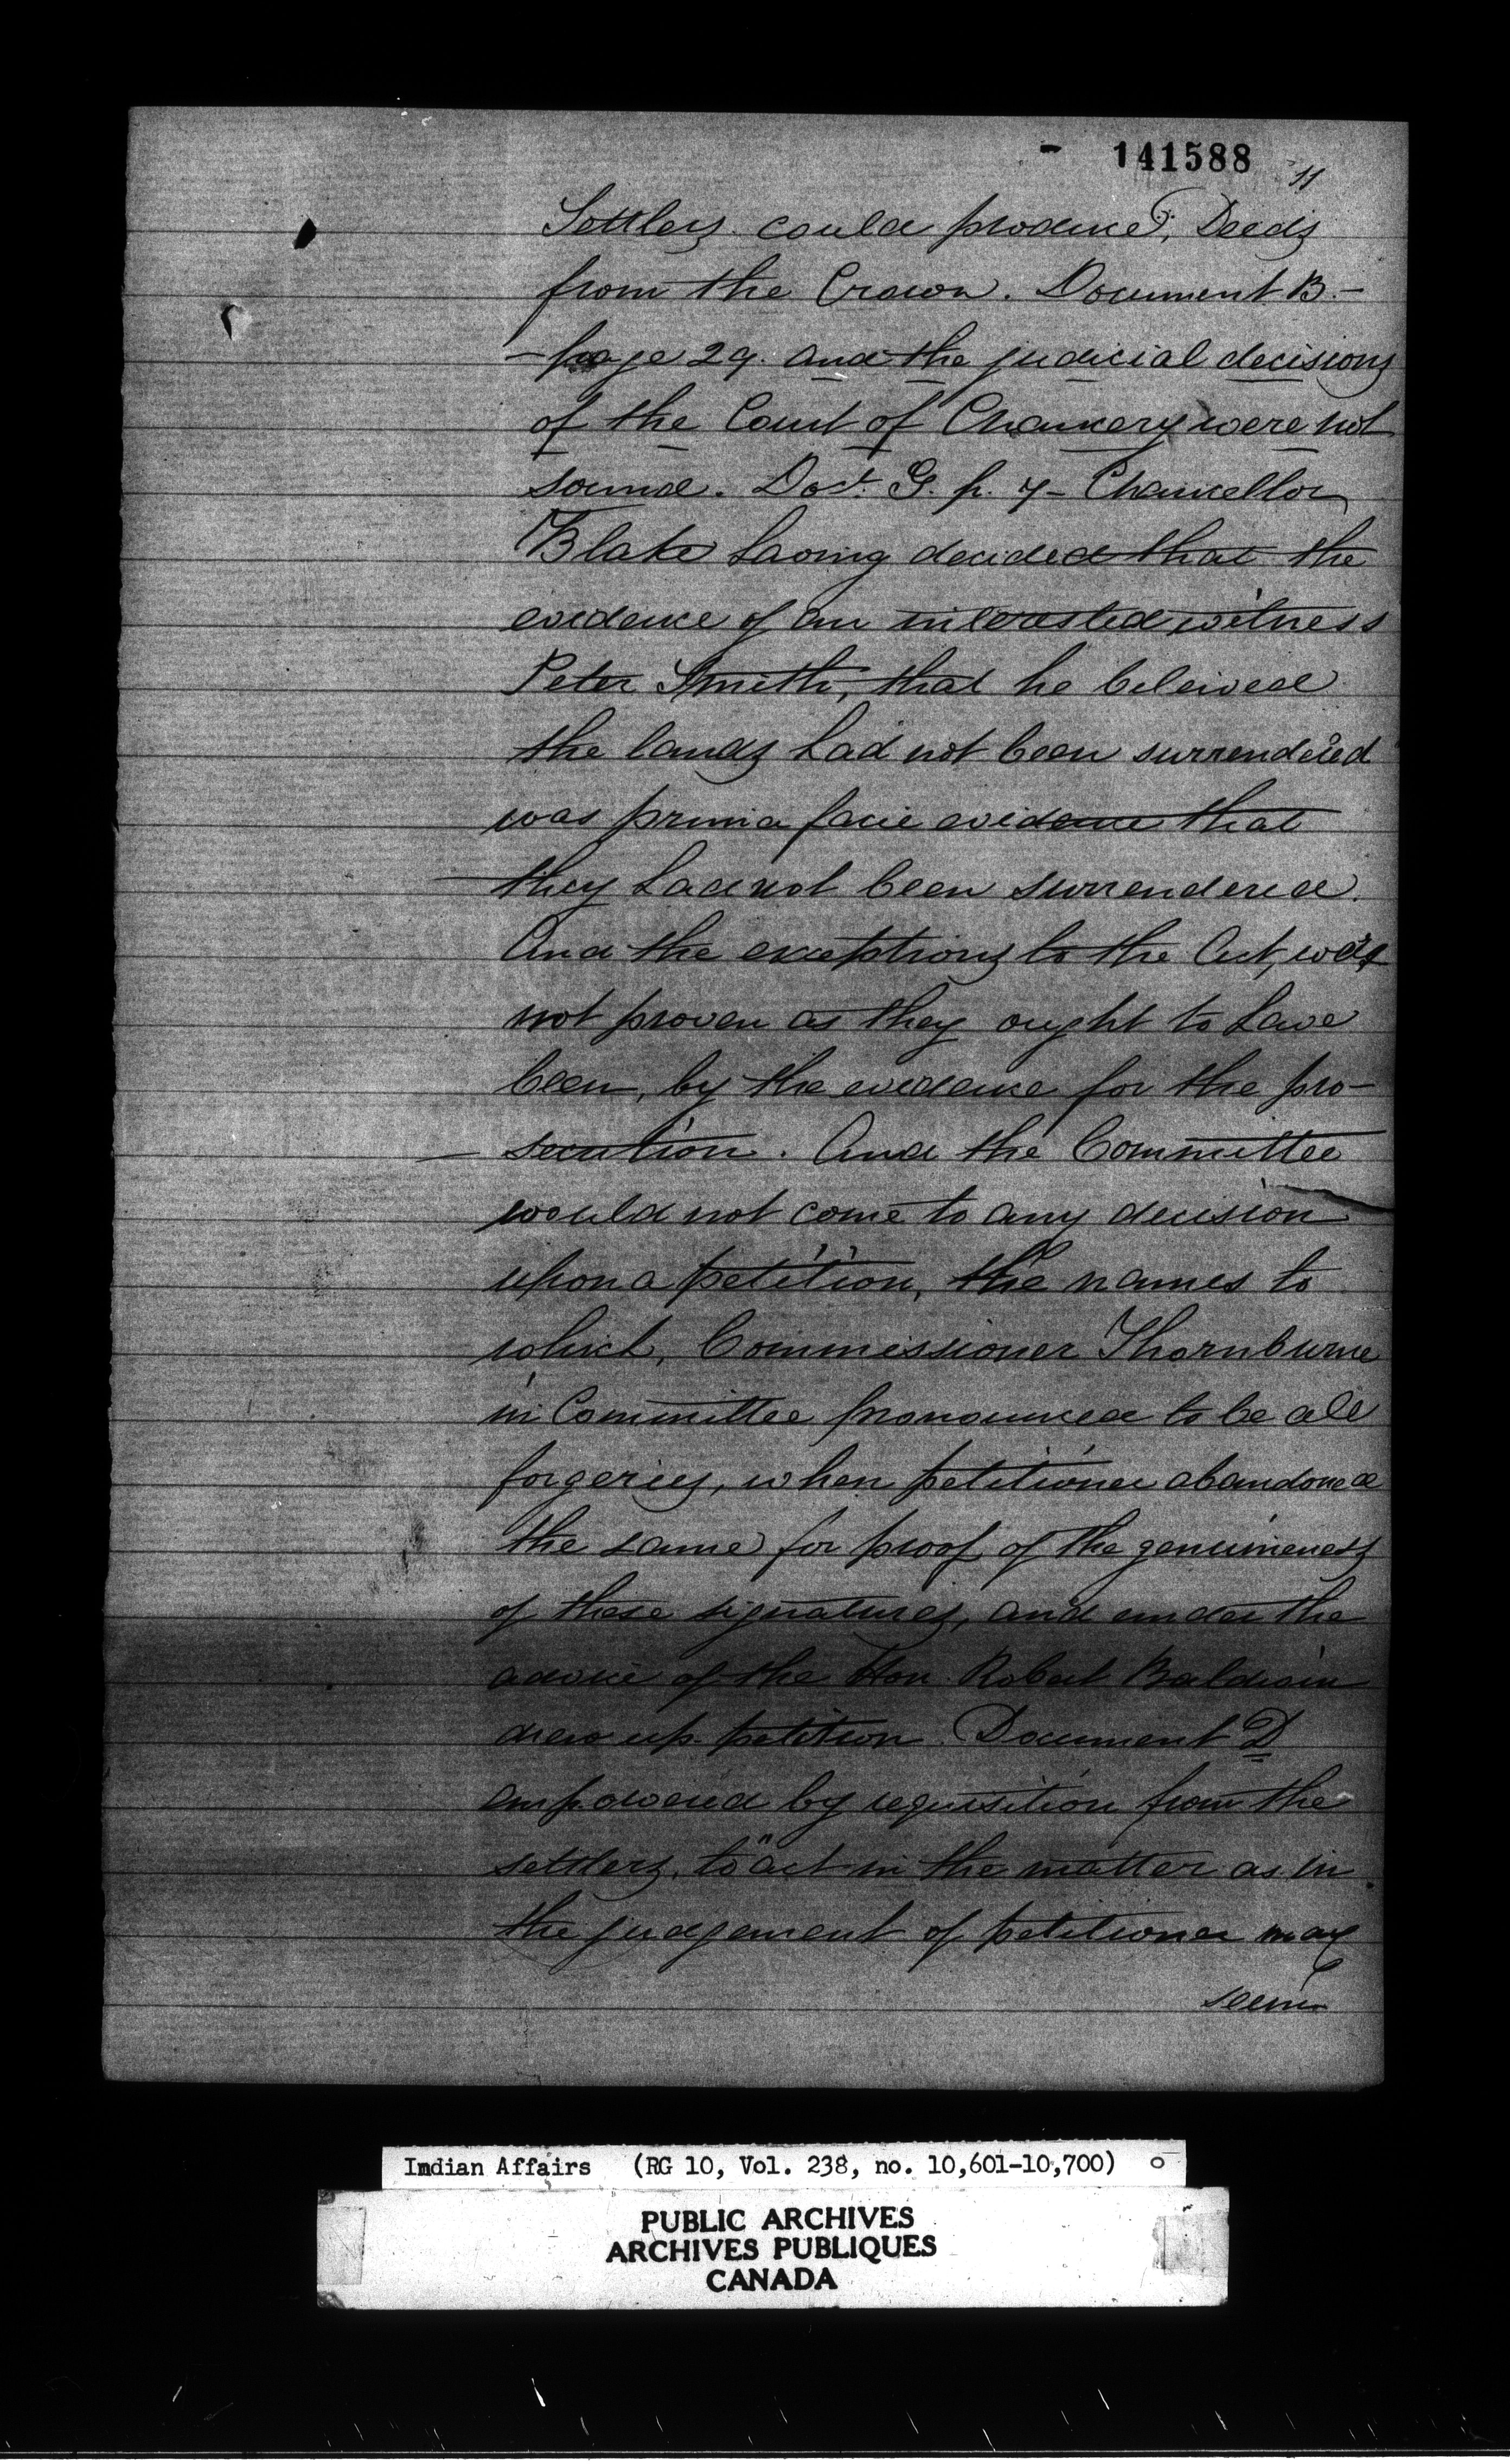 141588
11
Settlers could produce, Deeds
from the Crown. Document B.-
- page 29. and the judicial decisions
of the Court of Chancery were not
sound. Doct. G. p. 7 - Chancellor
Blake having decided that the
evidence of an interested witness
Peter Smith, that he beleived
the lands had not been surrendered
was prima facie evidence that
they had not been surrendered.
And the exceptions to the Act, was
not proven as they ought to have
been, by the evidence for the pro-
- secution. And the Committee
would not come to any decision
upon a petition, the names to
which, Commissioner Thornburne
in Committee pronounced to be all
forgeries, when petitioner abandoned
the same for proof of the genuineness
of these signatures, and under the
advice of the Hon. Robert Baldwin
drew up petition. Document D
empowered by requisition from the
settlers, to "act in the matter as in
the judgement of petitioner may
seem
Indian Affairs (RG 10, Vol. 238, no. 10,601-10,700)
PUBLIC ARCHIVES
ARCHIVES PUBLIQUES
CANADA